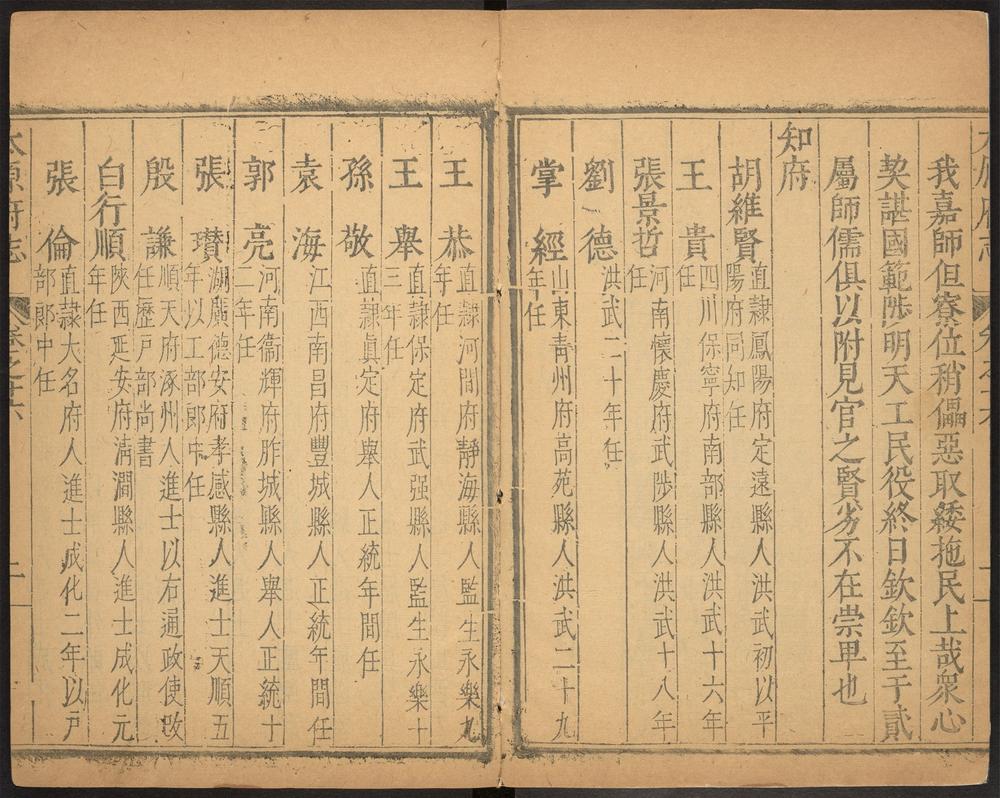 我嘉師但寮位稍儡惡取緌拖民上哉衆心
契諶國範陟明天工民役終日欽欽至于貳
屬師儒俱以附見官之賢劣不在崇畢也
知府
胡維賢 直隸鳳陽府定遠縣人洪武初以平
陽府同知任
王貴 四川保寧府南部縣人洪武十六年
任
張景哲 河南懷慶府武陟縣人洪武十八年
任
劉德 洪武二十年任
掌經 山東青州府高苑縣人洪武二十九
年任
王恭 直隸河間府靜海縣人監生永樂九
年任
王舉 直隸保定府武强縣人監生永樂十
三年任
孫敬 直隸眞定府舉人正統年間任
袁海 江西南昌府豐城縣人正統年間任
郭亮 河南衞輝府胙城縣人舉人正統十
二年任
張瓚 湖廣德安府孝感縣人進士天順五
年以工部郎中任
殷謙 順天府涿州人進士以右通政使改
任歷戸部尚書
白行順 陝西延安府淸澗縣人進士成化元
年任
張倫 直隸大名府人進士成化二年以戸
部郎中任
太原府志 卷之十六 二